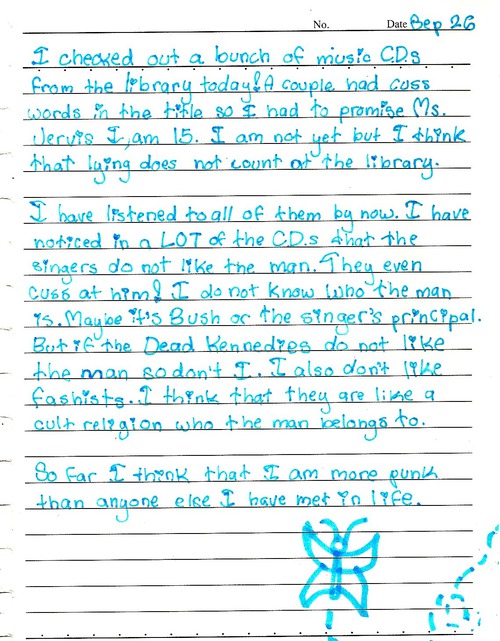 No. Date Sep 26
I checked out a bunch of music CDs
from the library today! A couple had cuss
words in the title so I had to promise Ms.
Jervis I am 15. I am not yet but I think
that lying does not count at the library.
I have listened to all of them by now. I have
noticed in a LOT of the CD.s that the
singers do not like the man. They even
cuss at him! I do not know who the man
is. Maybe it's Bush or the singer's principal.
But if the Dead Kennedies do not like
the man so don't I. I also don't like
fashists. I think that they are like a
cult religion who the man belongs to.
So far I think that I am more punk
than anyone else I have met in life.